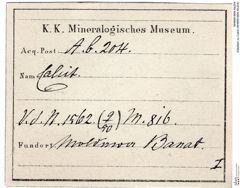 K. K. Mineralogisches Museum.
Acq. Post. A. b. 204.
Nam Calcit.
V. d. N. 1562. (9/70) M. 816.
Fundort Banat.
I